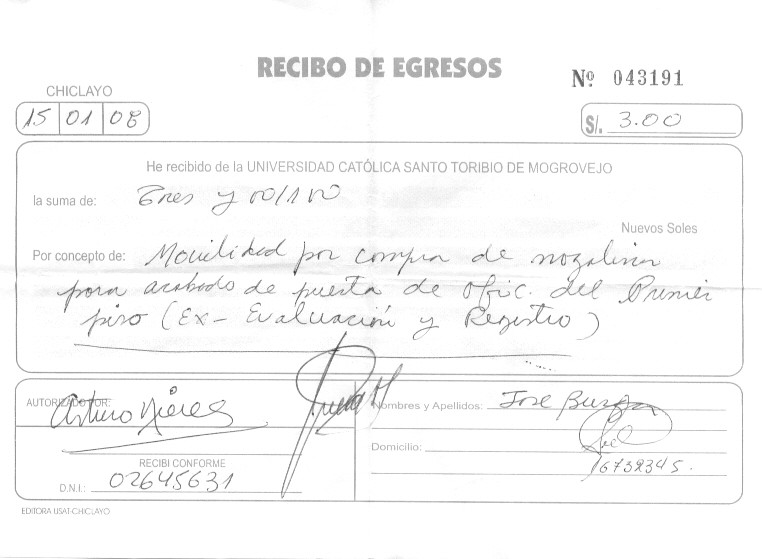 RECIBO DE EGRESOS
Nº 043191
CHICLAYO
15 01 08
S/. 3.00
He recibido de la UNIVERSIDAD CATÓLICA SANTO TORIBIO DE MOGROVEJO
la suma de: Tres y 00/100
Nuevos Soles
Por concepto de: Movilidad por compra de nogalina
para acabado de puerta de ofic. del Primer
piso (Ex- Evaluación y Registro)
AUTORIZADO POR: Arturo
Nombres y Apellidos: Jose
Domicilio:
RECIBI CONFORME
16732345.
D.N.I.: 02645631
EDITORA USAT-CHICLAYO